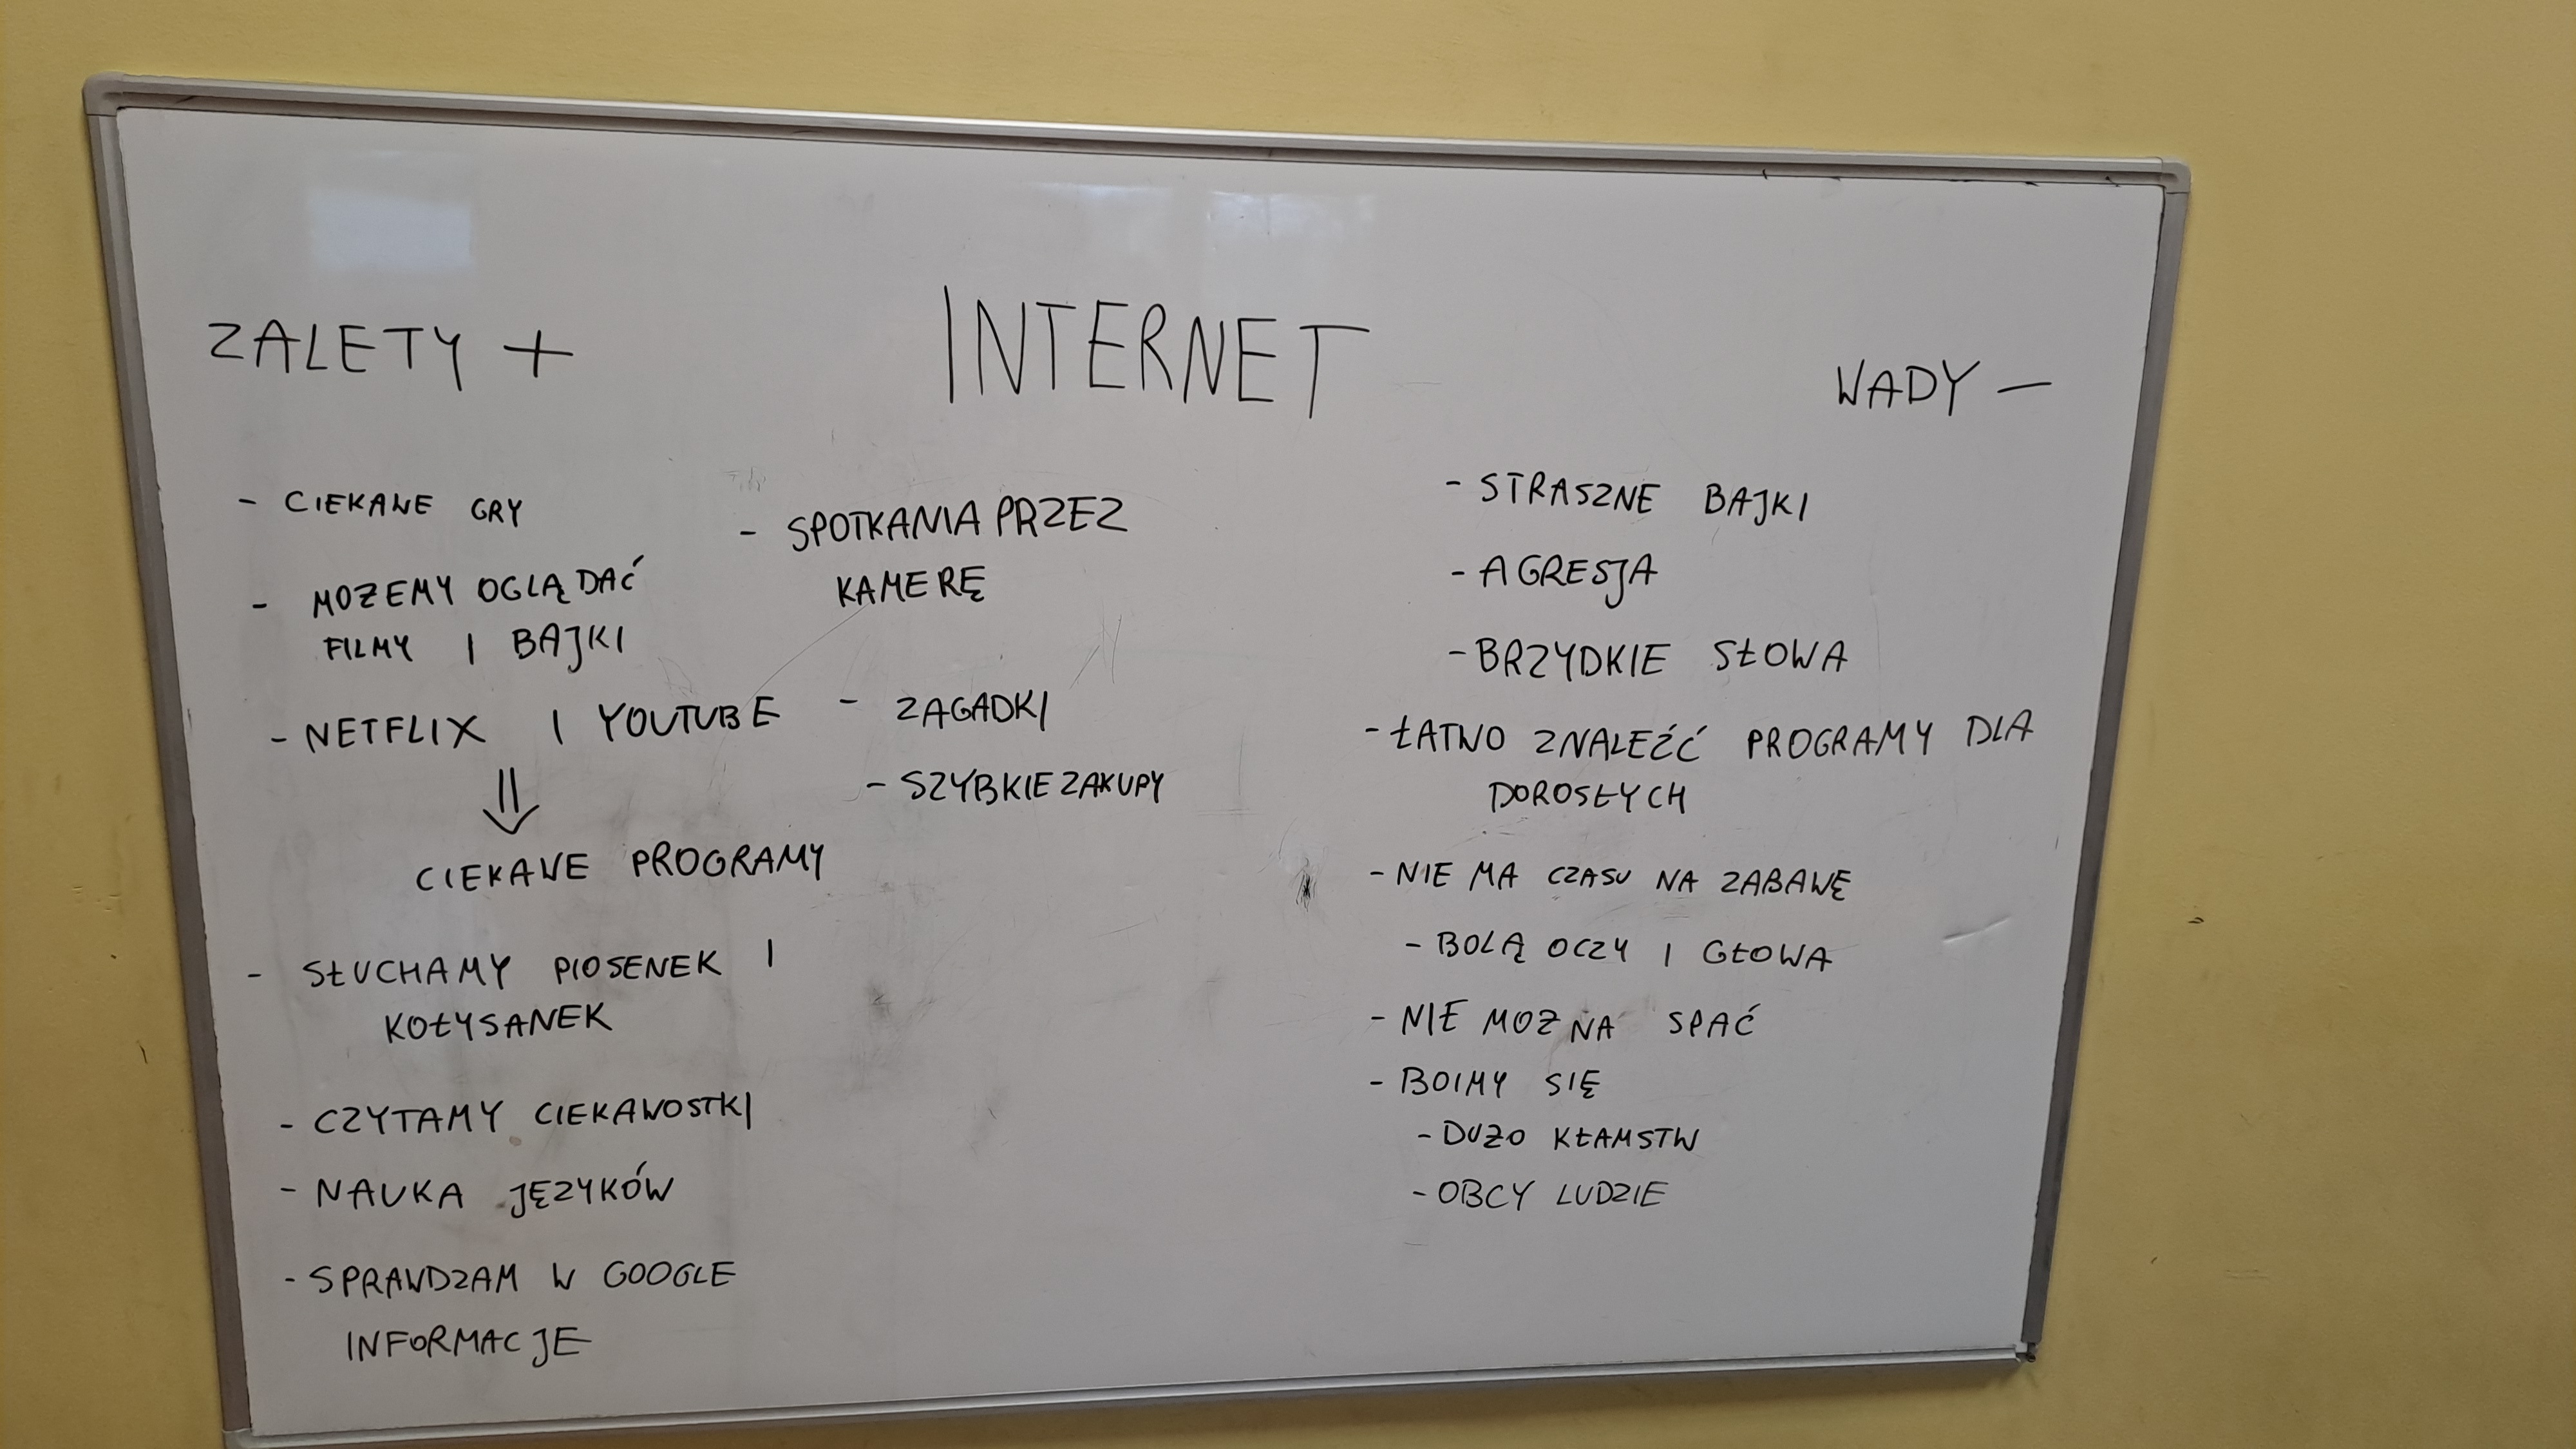 INTERNET
ZALETY +
- CIEKAWE GRY
- MOŻEMY OGLĄDAĆ
FILMY I BAJKI
- NETFLIX I YOUTUBE
⇓
CIEKAWE PROGRAMY
- SŁUCHAMY PIOSENEK I
KOŁYSANEK
- CZYTAMY CIEKAWOSTKI
- NAUKA JĘZYKÓW
- SPRAWDZAM W GOOGLE
INFORMACJE
- SPOTKANIA PRZEZ
KAMERĘ
- ZAGADKI
- SZYBKIE ZAKUPY
WADY -
- STRASZNE BAJKI
- AGRESJA
- BRZYDKIE SŁOWA
- ŁATWO ZNALEŹĆ PROGRAMY DLA
DOROSŁYCH
- NIE MA CZASU NA ZABAWĘ
- BOLĄ OCZY I GŁOWA
- NIE MOŻNA SPAĆ
- BOIMY SIĘ
- DUŻO KŁAMSTW
- OBCY LUDZIE